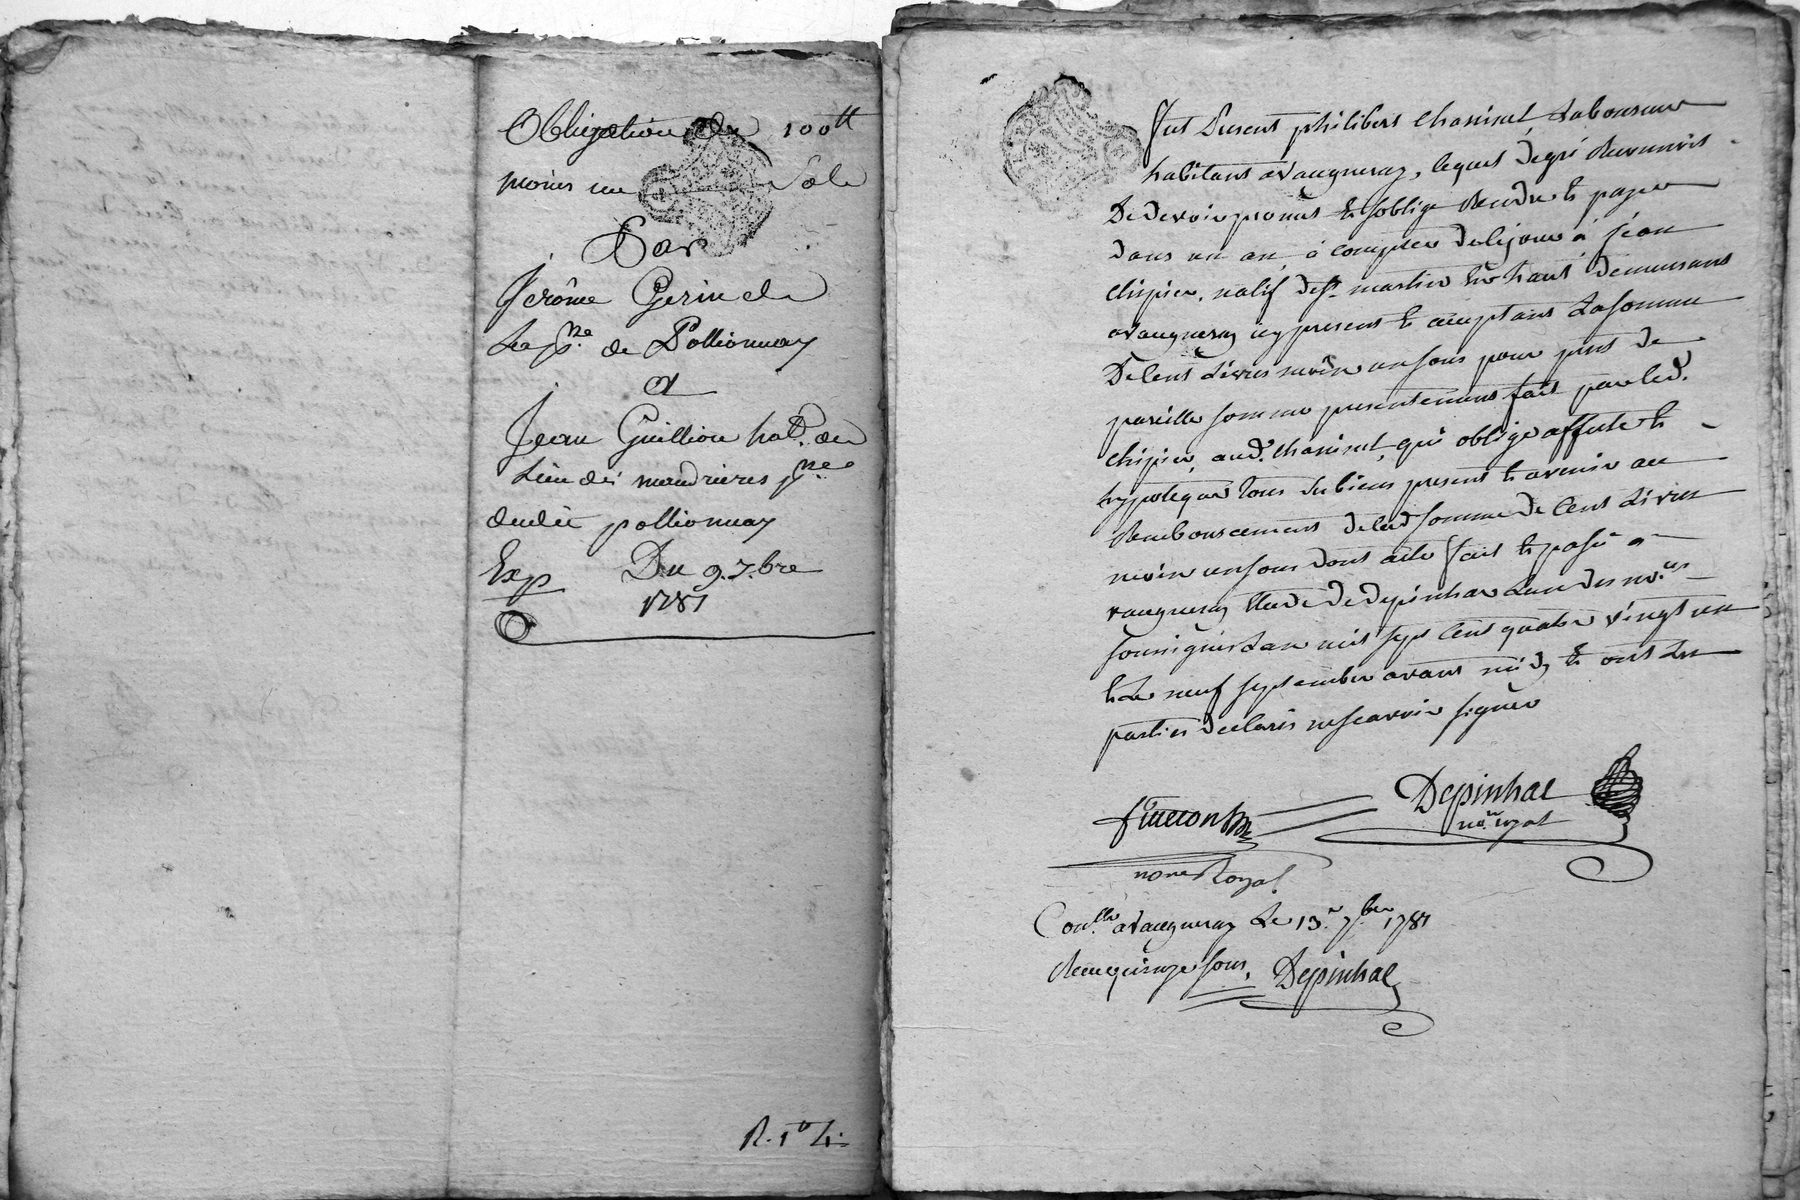 Obligation de 100tt
moins un Sole
Par
Jerôme Gerin de
La psse de Pollionnay
a
Jean Guillion hab. du
Lieu des mandrieres psse
dudit pollionnay
Exp Du 9. 7.bre
1781
R. 1tt 4.
fut Present philibert Chanisut Laboureur
habitant a Vaugneray, lequel de gré Reconnois
De devoir promis et s'oblige Rendre et payer
dans un an à compter de ce jour à jean
chipier, natif de st martin en haut demeurant
a Vaugneray icy present et acceptant La somme
De Cent Livres moin un sous pour prest de
pareille somme presentement fait par led.
chipier, aud. Chanisut, qui oblige affecte et
hypoteque tous ses biens present et avenir au
Remboursement de lad somme de Cent Livres
moin un sous dont acte fait et passé a
vaugneray Etude de Depinhac L'un des no.res
soussignés L'an mil sept Cent quatre vingt un
et Le neuf septembre avant midy et ont Les
parties declaré ne scavoir signer
Depinhac
no.re royal
nore Royal
Con.lle a Vaugneray Le 13.e 7.bre 1781
Recu quinze sous, Depinhac